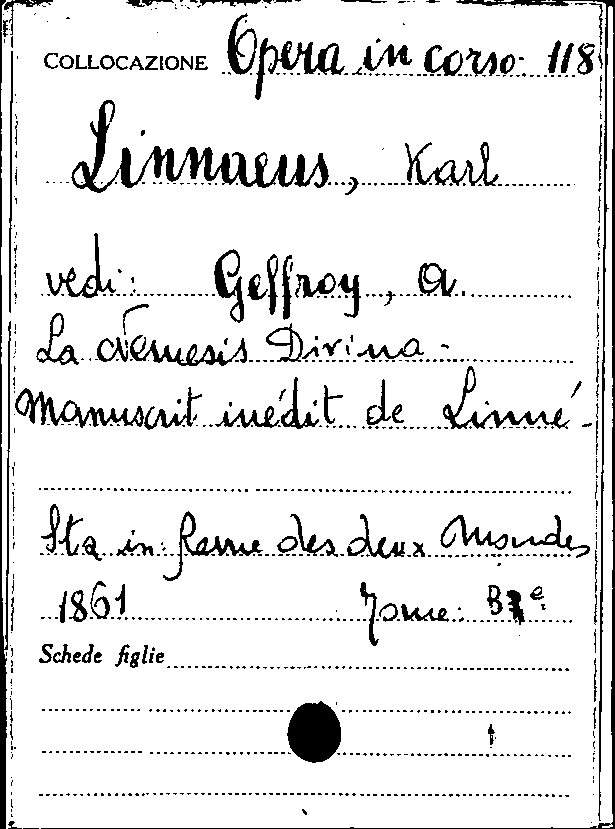 COLLOCAZIONE Opera in corso 118
Linnaeus, Karl
vedi: Geffroy, A.
La Nemesis Divina -
Manuscrit inédit de Linné -
Sta in: Revue des deux Mondes
1861 Tome:
Schede figlie